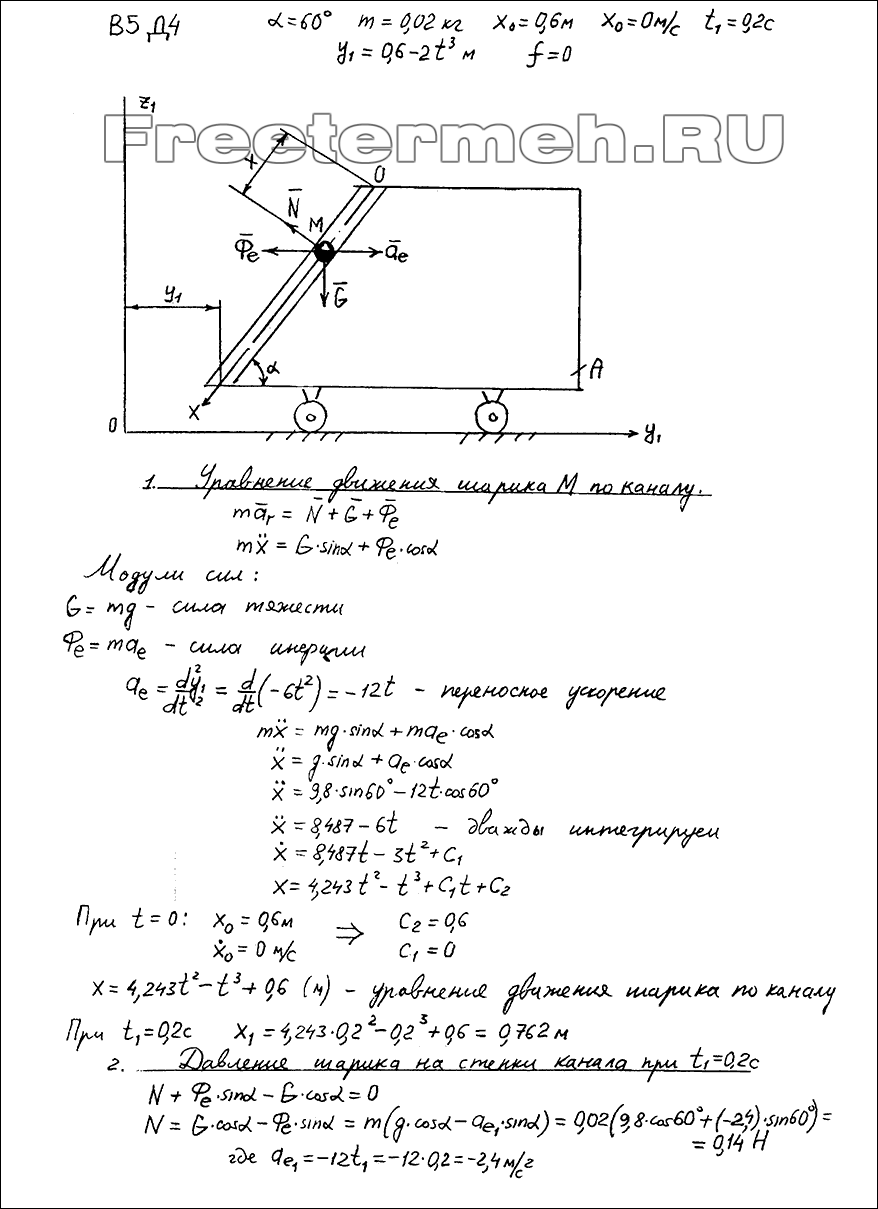 В5 Д4 α=60° m=0,02 кг x₀=0,6м x₀=0м/с t₁=0,2с
y₁=0,6-2t³ м f=0
z₁
Freetermeh.RU
x
O
N̅
M
Φ̅e
a̅e
G̅
y₁
α
A
x
0
y₁
1. Уравнение движения шарика М по каналу.
ma̅r = N̅+G̅+Φ̅e
mẍ = G·sinα+Φe·cosα
Модули сил:
G=mg - сила тяжести
Φe=mae - сила инерции
ae = d²y₁/dt² = d/dt(-6t²) = -12t - переносное ускорение
mẍ = mg·sinα+mae·cosα
ẍ = g·sinα+ae·cosα
ẍ = 9,8·sin60°-12t·cos60°
ẍ = 8,487-6t - дважды интегрируем
ẋ = 8,487t-3t²+C₁
x = 4,243t²-t³+C₁t+C₂
При t=0: x₀=0,6м ⇒ C₂=0,6
ẋ₀=0 м/с C₁=0
x=4,243t²-t³+0,6 (м) - уравнение движения шарика по каналу
При t₁=0,2с x₁=4,243·0,2²-0,2³+0,6=0,762м
2. Давление шарика на стенки канала при t₁=0,2с
N+Φe·sinα-G·cosα=0
N = G·cosα-Φe·sinα = m(g·cosα-ae₁·sinα) = 0,02(9,8·cos60°+(-2,4)·sin60°) =
= 0,14 Н
где ae₁=-12t₁=-12·0,2=-2,4м/с²